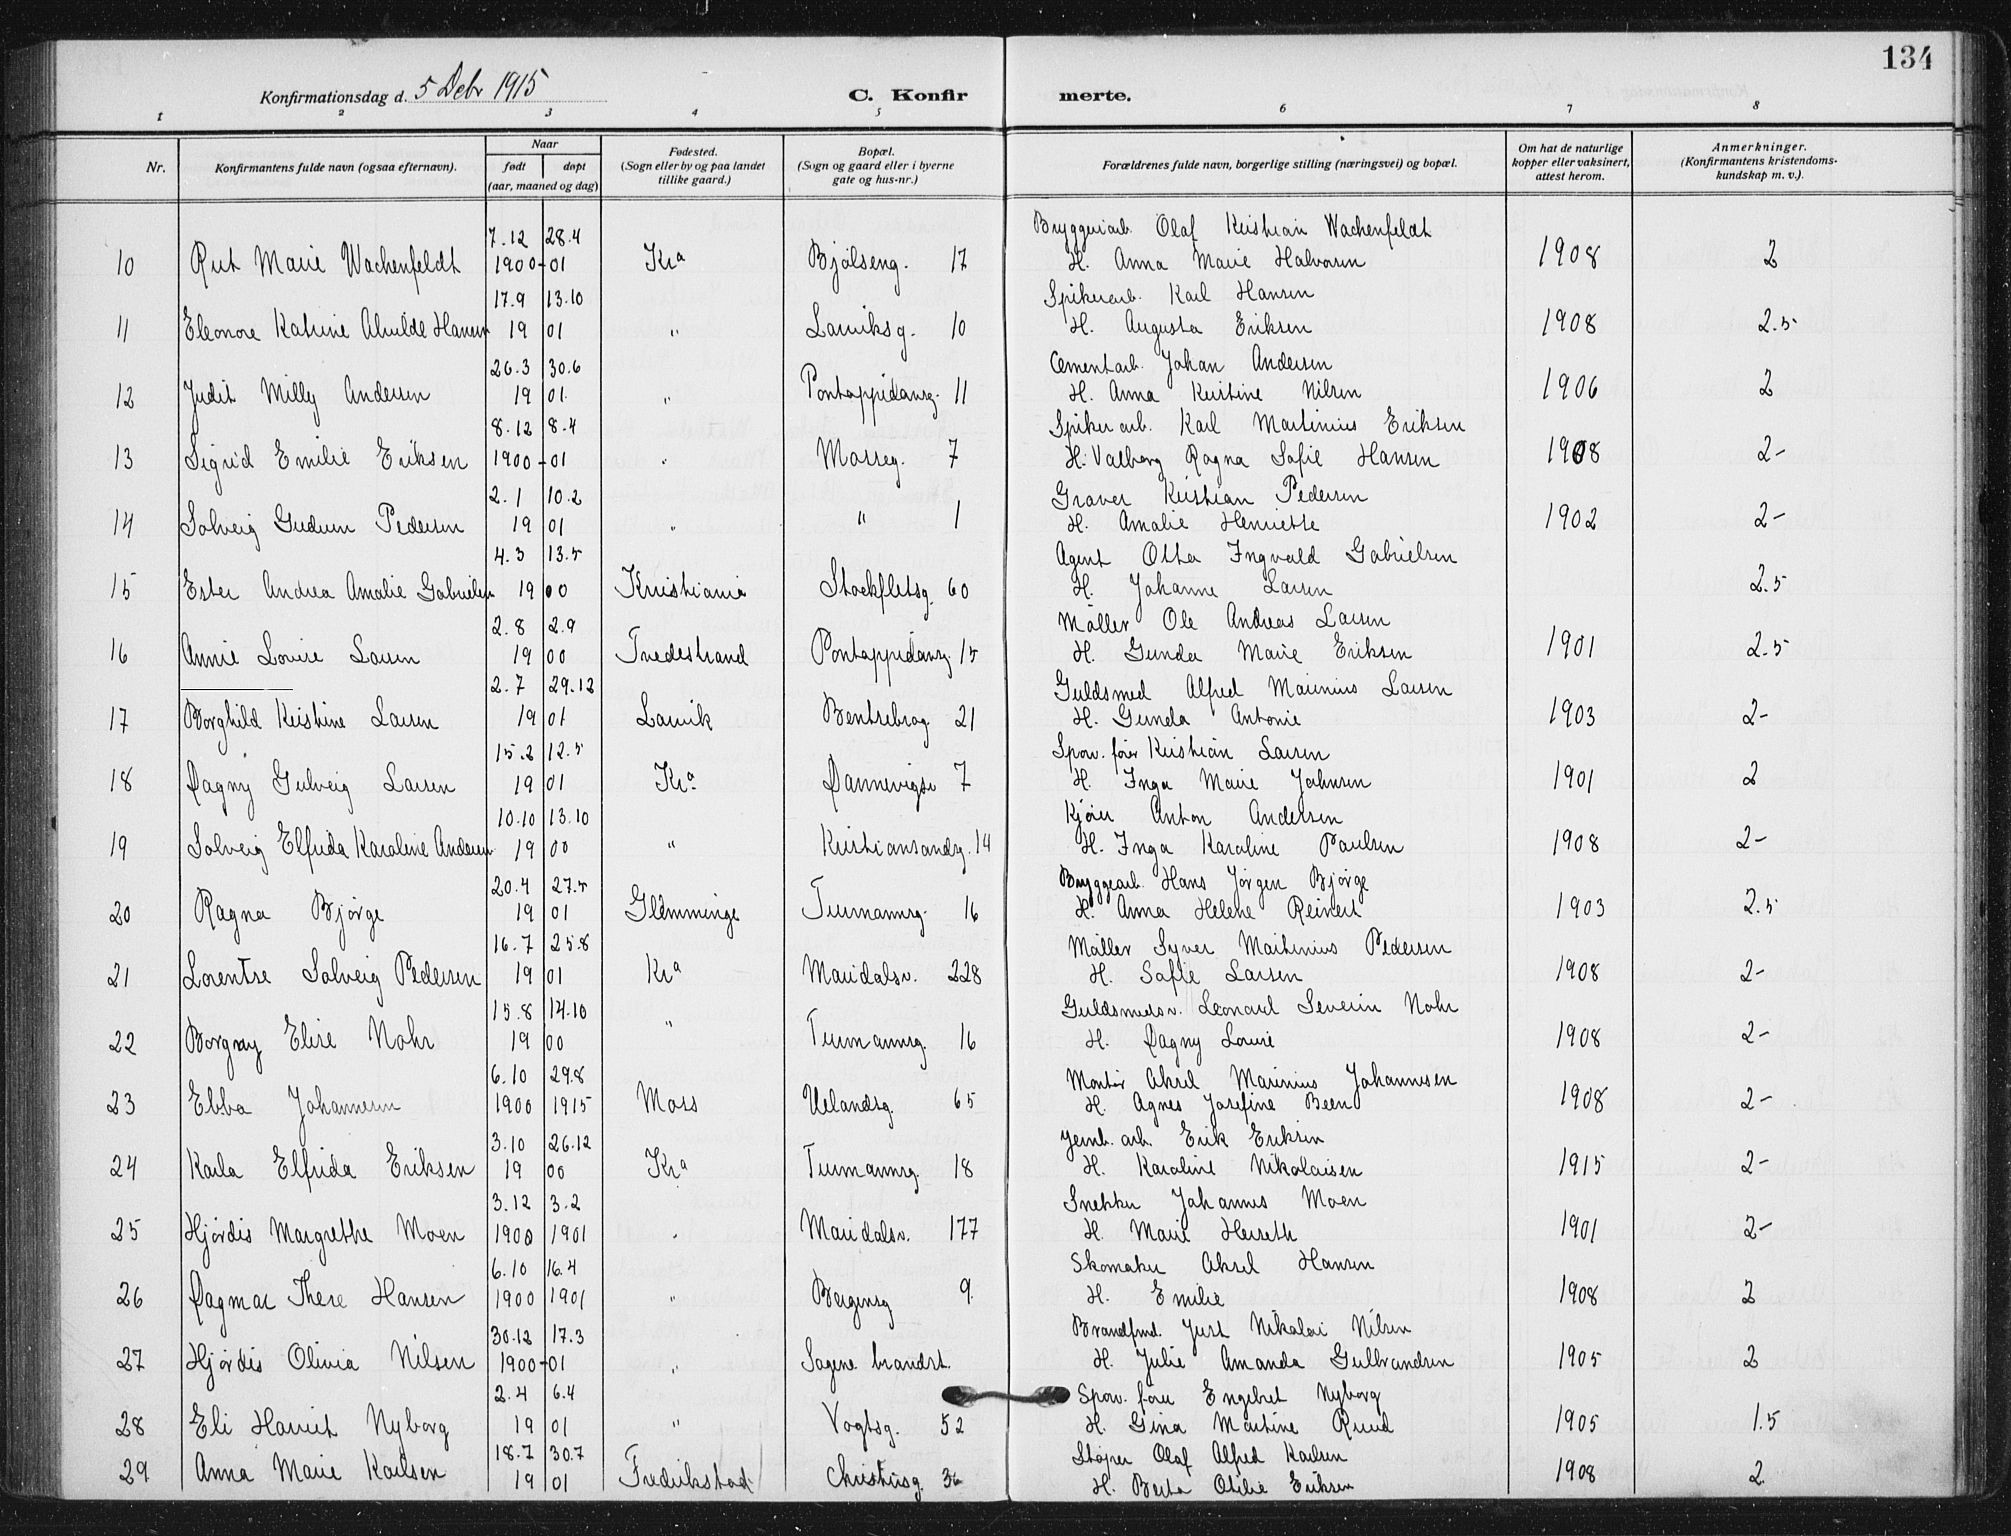 134
Konfirmationsdag d. 5 Debr 1915
C. Konfirmerte.
1 2 3 4 5 6 7 8
Nr.
Konfirmantens fulde navn (ogsaa efternavn).
Naar
født døpt
(aar, maaned og dag)
Fødested.
(Sogn eller by og paa landet
tillike gaard.)
Bopæl.
(Sogn og gaard eller i byerne
gate og hus-nr.)
Forældrenes fulde navn, borgerlige stilling (næringsvei) og bopæl.
Om hat de naturlige
kopper eller vaksinert,
attest herom.
Anmerkninger.
(Konfirmantens kristendoms-
kundskap m. v.).
7.12 28.4 Bryggeriarb. Olaf Kristian Wachenfeldt
10 Rut Marie Wachenfeldt 1900-01 Kra Bjølseng. 17 H. Anna Marie Halvorsen 1908 2
17.9 13.10 Spikerarb. Karl Hansen
11 Eleonore Katrine Alvilde Hansen 19 01 " Larviksg. 10 H. Augusta Eriksen 1908 2.5
26.3 30.6 Cementarb. Johan Andersen
12 Judit Milly Andersen 19 01 " Pontoppidansg. 11 H. Anna Kristine Nilsen 1906 2
8.12 8.4 Spikerarb. Karl Martinius Eriksen
13 Sigrid Emilie Eriksen 1900-01 " Mosseg. 7 H. Valborg Ragna Sofie Hansen 1908 2-
2.1 10.2 Graver Kristian Pedersen
14 Solveig Gudrun Pedersen 19 01 " " 1 H. Amalie Henriette 1902 2-
4.3 13.5 Agent Otto Ingvald Gabrielsen
15 Ester Andrea Amalie Gabrielsen 19 00 Kristiania Stockfletsg. 60 H. Johanne Larsen 2.5
2.8 2.9 Møller Ole Andreas Larsen
16 Annie Lovise Larsen 19 00 Tvedestrand Pontoppidansg. 15 H. Gunda Marie Eriksen 1901 2.5
2.7 29.12 Guldsmed Alfred Marinius Larsen
17 Borghild Kristine Larsen 19 01 Larvik Bentsebrog. 21 H. Gunda Antonie 1903 2-
15.2 12.5 Sporv.fører Kristian Larsen
18 Dagny Gulveig Larsen 19 01 Kra. Dannevigsv. 7 H. Inga Marie Johnsen 1901 2
10.10 13.10 Kjører Anton Andersen
19 Solveig Elfrida Karoline Andersen 19 00 " Kristiansandsg. 14 H. Inga Karoline Paulsen 1908 2-
20.4 27.5 Bryggearb. Hans Jørgen Bjørge
20 Ragna Bjørge 19 01 Glemminge Tuemannsg. 16 H. Anna Helene Reinert 1903 2.5
16.7 25.8 Møller Syver Martinius Pedersen
21 Lorentse Solveig Pedersen 19 01 Kra Maridalsv. 228 H. Sofie Larsen 1908 2-
15.8 14.10 Guldsmedsv. Leonard Severin Nohr
22 Borgny Elise Nohr 19 00 " Tuemannsg. 16 H. Dagny Lovise 1908 2-
6.10 29.8 Montør Aksel Marinius Johannesen
23 Ebba Johannesen 1900 1915 Moss Uelandsg. 65 H. Agnes Josefine Been 1908 2-
3.10 26.12 Jernb. arb. Erik Eriksen
24 Karla Elfrida Eriksen 19 00 Kra Tuemannsg. 18 H. Karoline Nikolaisen 1915 2-
3.12 3.2 Snekker Johannes Moen
25 Hjørdis Margrethe Moen 1900 1901 " Maridalsv. 177 H. Marie Herseth 1901 2-
6.10 16.4 Skomaker Aksel Hansen
26 Dagmar Therese Hansen 1900 1901 " Bergensg 9 H. Emilie 1908 2
30.12 17.3 Brandfmd. Just Nikolai Nilsen
27 Hjørdis Olivia Nilsen 1900-01 " Sagene brandst. H. Julie Amanda Gulbrandsen 1905 2
2.4 6.4 Sporv. fører Engebret Nyborg
28 Eli Harriet Nyborg 19 01 " Vogtsg. 52 H. Gina Martine Ruud 1905 1.5
18.7 30.7 Støper Olaf Alfred Karlsen
29 Anna Marie Karlsen 19 01 Fredrikstad Christiesg. 36 H. Berta Otilie Eriksen 1908 2